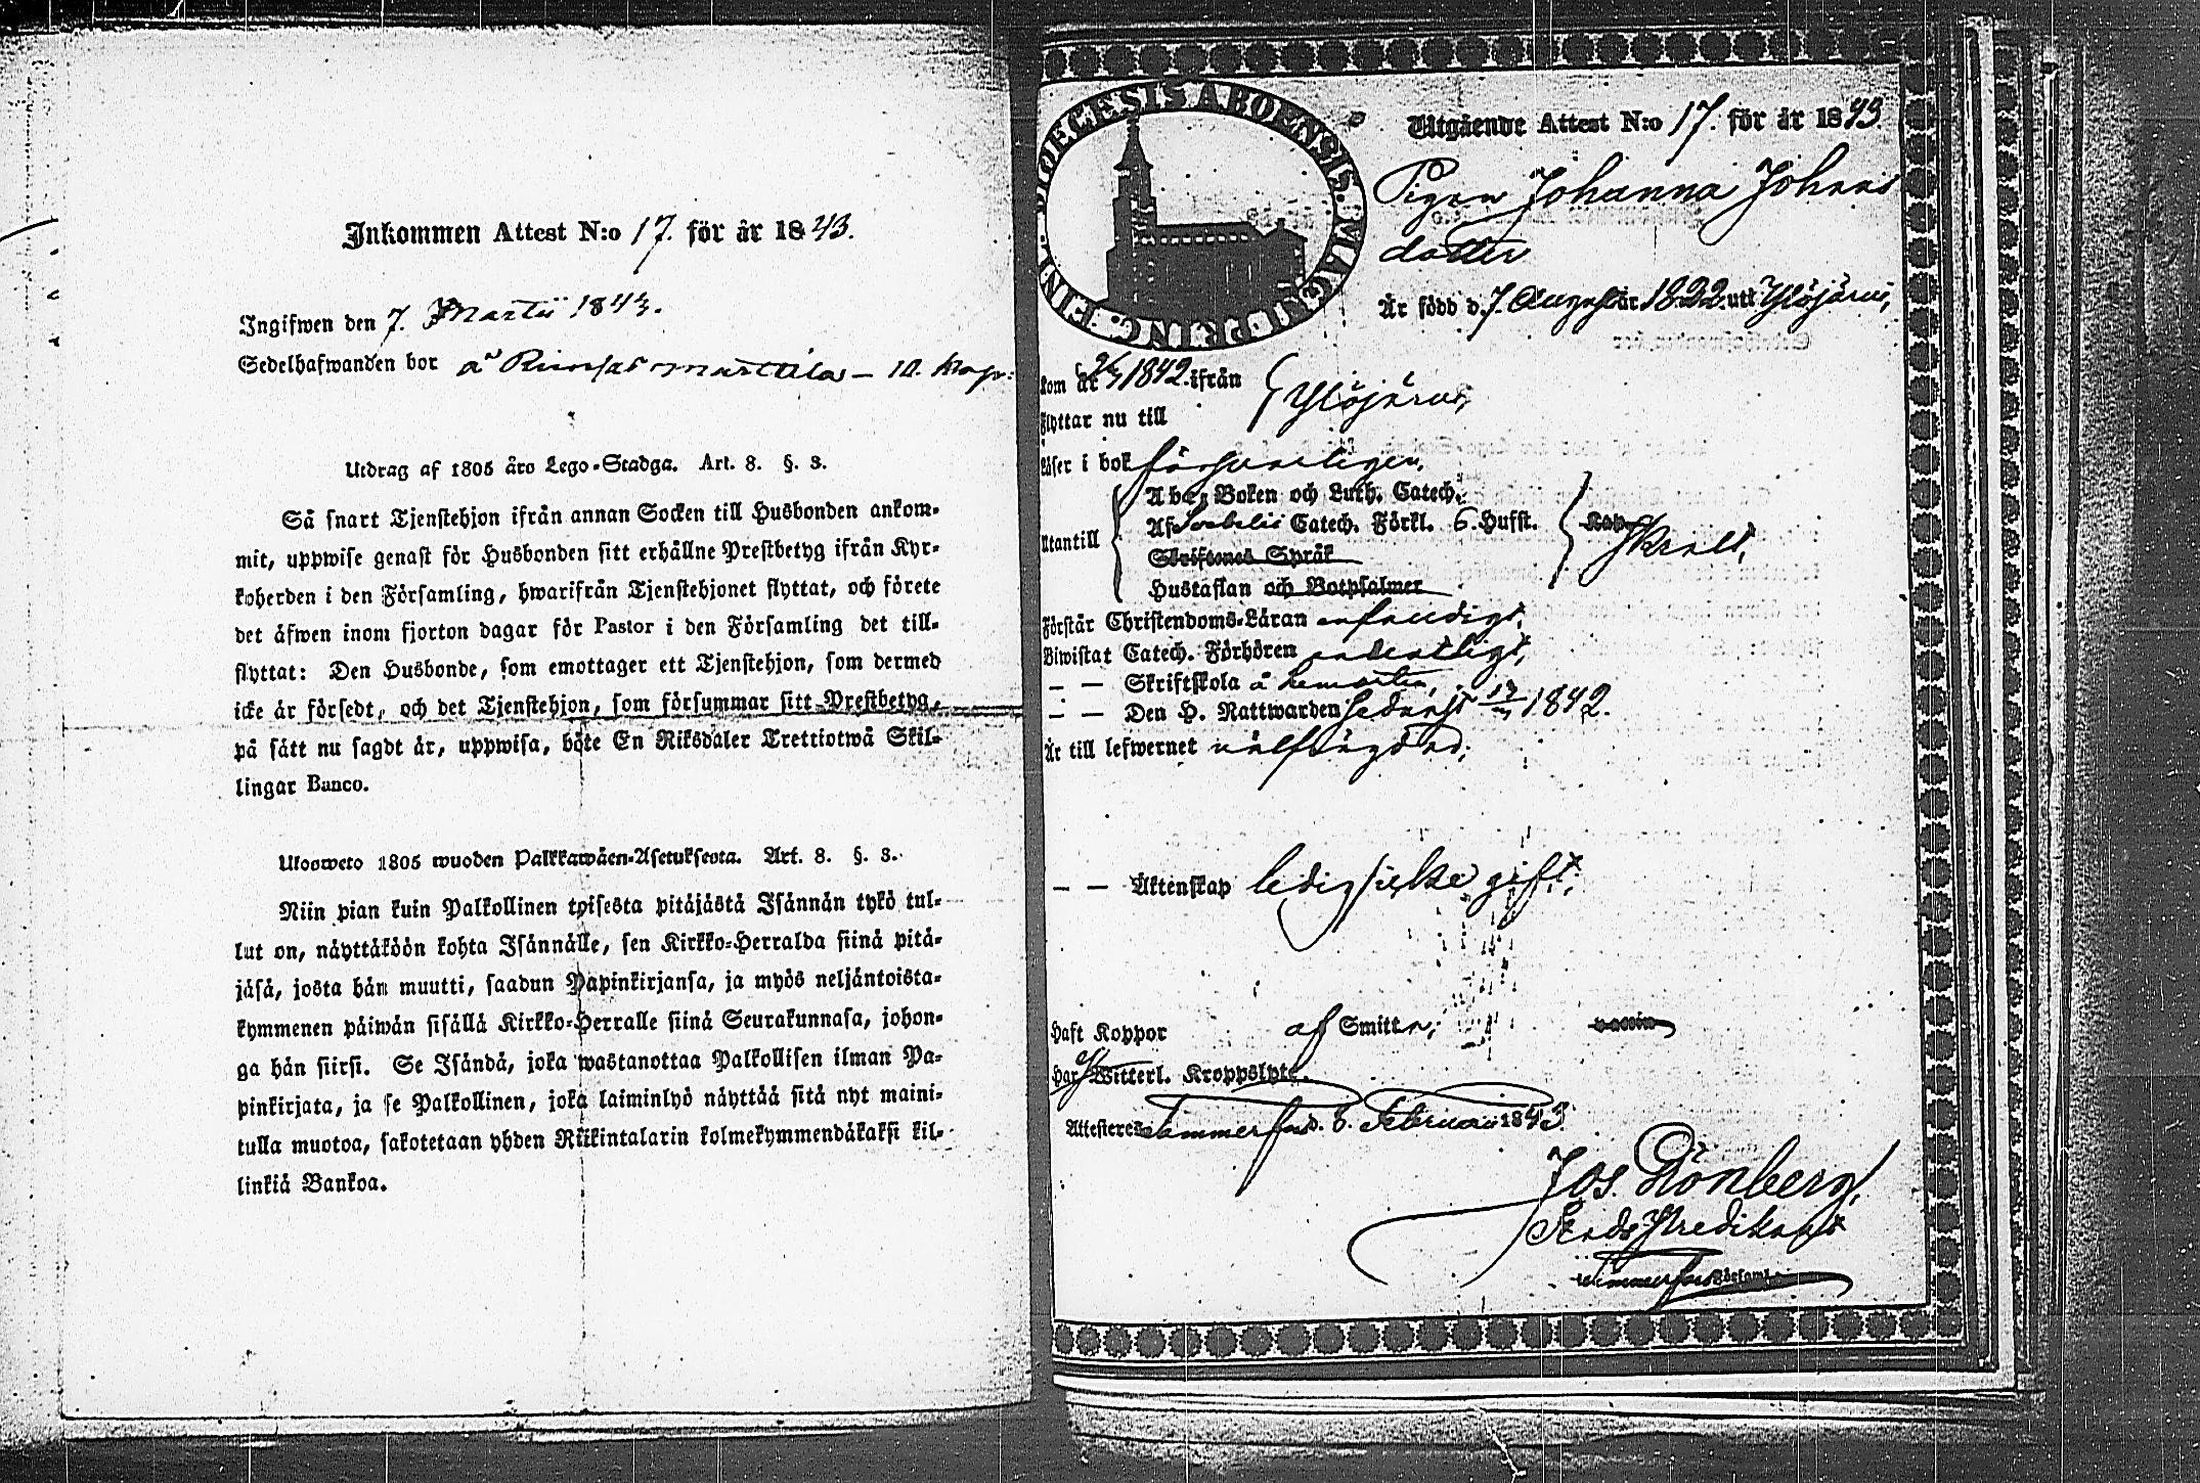 Inkommen Attest N:o 17. för år 1843.
Ingifwen den 7. Martii 1843.
Sedelhafwanden bor å
Utdrag af 1805 års Lego-Stadga. Art. 8. §. 3.
Så snart Tjenstehjon ifrån annan Socken till Husbonden ankom-
mit, uppwise genast för Husbonden sitt erhållne Prestbetyg ifrån Kyr-
koherden i den Församling, hwarifrån Tjenstehjonet flyttat, och förete
det äfwen inom fjorton dagar för Pastor i den Församling det till-
flyttat: Den Husbonde, som emottager ett Tjenstehjon, som dermed
icke är försedt, och det Tjenstehjon, som försummar sitt Prestbetyg,
på sätt nu sagdt är, uppwisa, böte En Riksdaler Trettiotwå Skil-
lingar Banco.
Ulosweto 1805 wuoden Palkkawäen-Asetuksesta. Art. 8. §. 3.
Niin pian kuin Palkollinen toisesta pitäjästä Isännän tykö tul-
lut on, näyttäköön kohta Isännälle, sen Kirkko-Herralda siinä pitä-
jäsä, josta hän muutti, saadun Papinkirjansa, ja myös neljäntoista-
kymmenen päiwän sisällä Kirkko-Herralle siinä Seurakunnasa, johon-
ga hän siirsi. Se Isändä, joka wastanottaa Palkollisen ilman Pa-
pinkirjata, ja se Palkollinen, joka laiminlyö näyttää sitä nyt maini-
tulla muotoa, sakotetaan yhden Riikintalarin kolmekymmendäkaksi kil-
linkiä Bankoa.
DIOECESIS ABOENSIS. MAGNI PRINC. FINL.
Utgående Attest N:o 17. för år 1843
Pigan Johanna Johans
dotter
Är född d. 7. August år 1822. uti Ylöjärvi,
kom år 1842. ifrån
Flyttar nu till Ylöjärvi,
Läser i bok försvarligen,
Utantill
Abc, Boken och Luth. Catech.
Af Svebelii Catech. Förkl. 6. Hufst.
Skriftenes Språk
Hustaflan och Botpsalmer
Förstår Christendoms-Läran enfaldigt,
Biwistat Catech. Förhören ordentligt,
— — Skriftskola å
— — Den H. Nattwarden sednast 1842.
Är till lefwernet välfrägdad,
— — Äktenskap ledig, icke gift,
Haft Koppor af Smitta,
Har Witterl. Kroppslyte.
Attesteres Tammerfors d. 8. Februarii 1843.
Jos. Grönberg,
Stads Predikant
Tammerfors Församl.